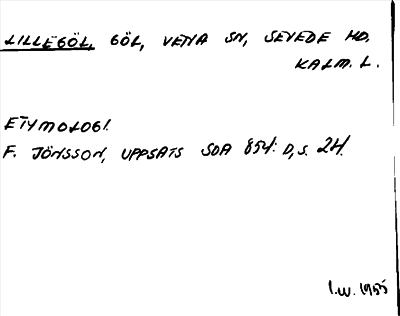 LILLEGÖL, GÖL, VENA SN, SEVEDE HD.
KALM. L.
ETYMOLOGI.
F. JÖNSSON, UPPSATS SOA 854: D, S. 24.
I.W. 1955